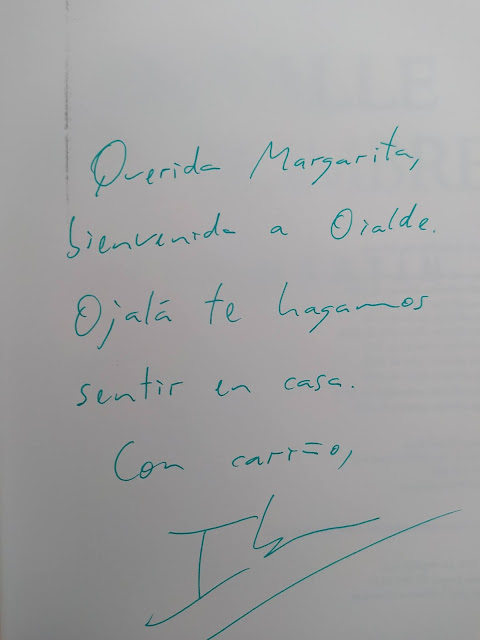 Querida Margarita,
bienvenida a Oialde.
Ojalá te hagamos
sentir en casa.
Con cariño,